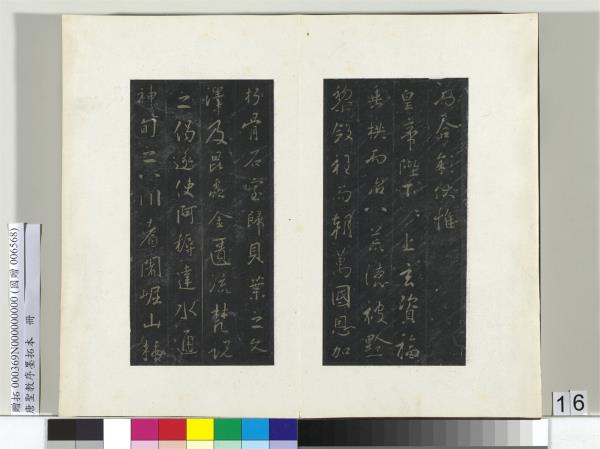 為合彩伏惟
皇帝陛下上玄資福
垂拱而治八荒德被黔
黎斂衽而朝萬國恩加
朽骨石室歸貝葉之文
澤及昆蟲金匱流梵說
之偈遂使阿耨達水通
神甸之八川耆闍崛山接
贈拓 000369N000000000 (國贈 006568)
唐聖教序墨拓本 冊
16